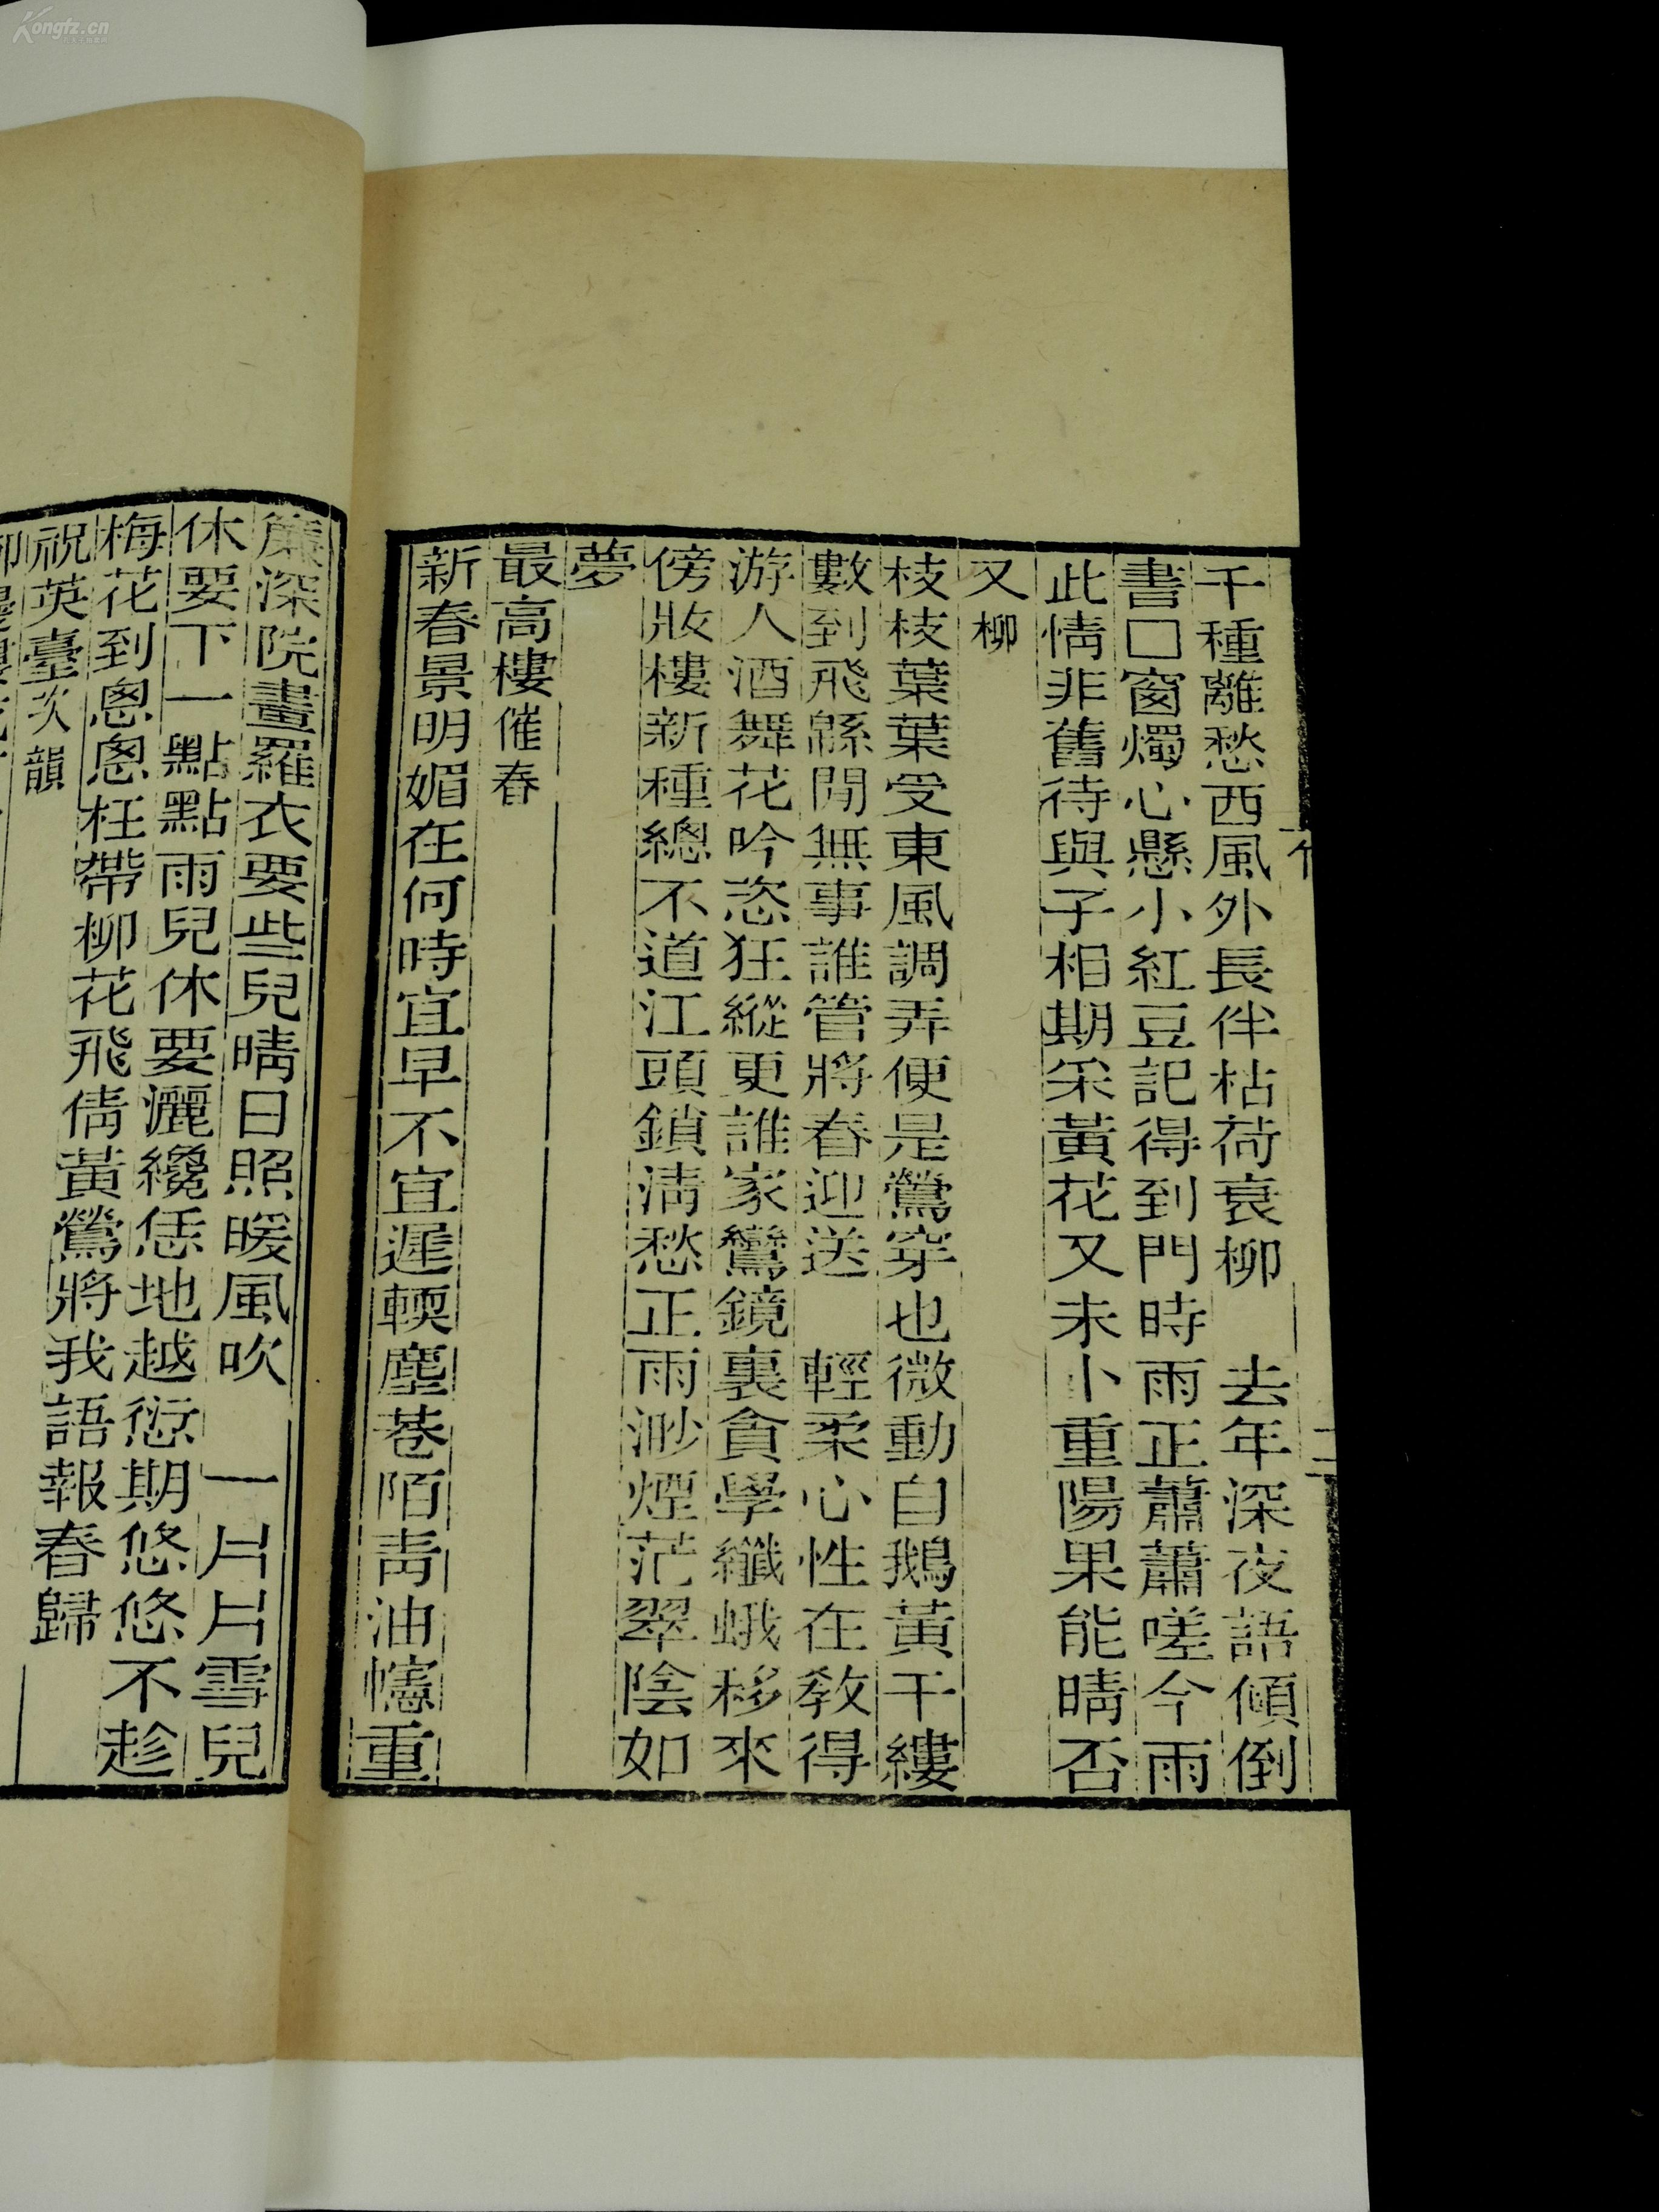 千種離愁西風外長伴枯荷衰柳　去年深夜語傾倒
書□窗燭心懸小紅豆記得到門時雨正蕭蕭嗟今雨
此情非舊待與子相期采黃花又未卜重陽果能晴否
又柳
枝枝葉葉受東風調弄便是鶯穿也微動自鵝黃千縷
數到飛緜閒無事誰管將春迎送　輕柔心性在教得
游人酒舞花吟恣狂縱更誰家鸞鏡裏貪學纖蛾移來
傍妝樓新種總不道江頭鎖淸愁正雨渺煙茫翠陰如
夢
最高樓催春
新春景明媚在何時宜早不宜遲輭塵巷陌靑油幰重
簾深院畫羅衣要些兒晴日照暖風吹　一片片雪兒
休要下一點點雨兒休要灑纔恁地越愆期悠悠不趁
梅花到悤悤枉帶柳花飛倩黃鶯將我語報春歸
祝英臺次韻
Kongfz.cn